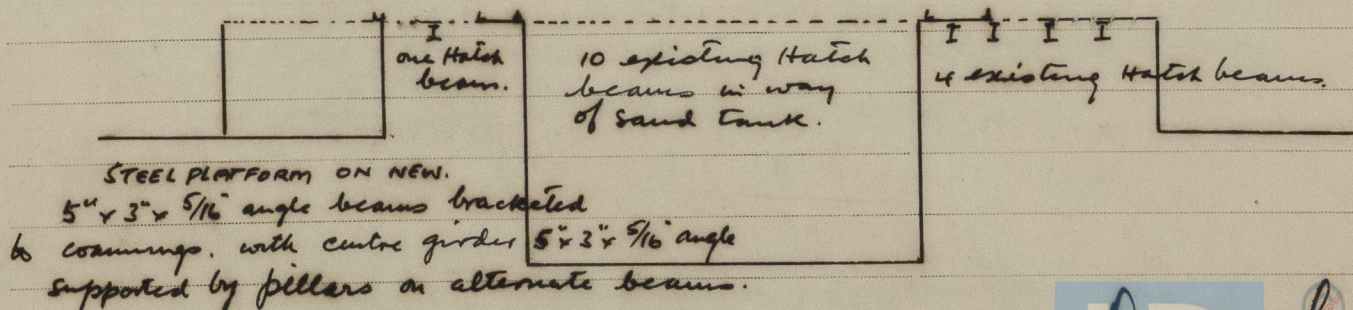 I
one Hatch
beam.
10 existing Hatch
beams in way
of sand tank.
I I I I
4 existing Hatch beams.
STEEL PLATFORM ON NEW.
5" x 3" x 5/16" angle beams bracketed
to coamings. with centre girder 5" x 3" x 5/16" angle
supported by pillars on alternate beams.